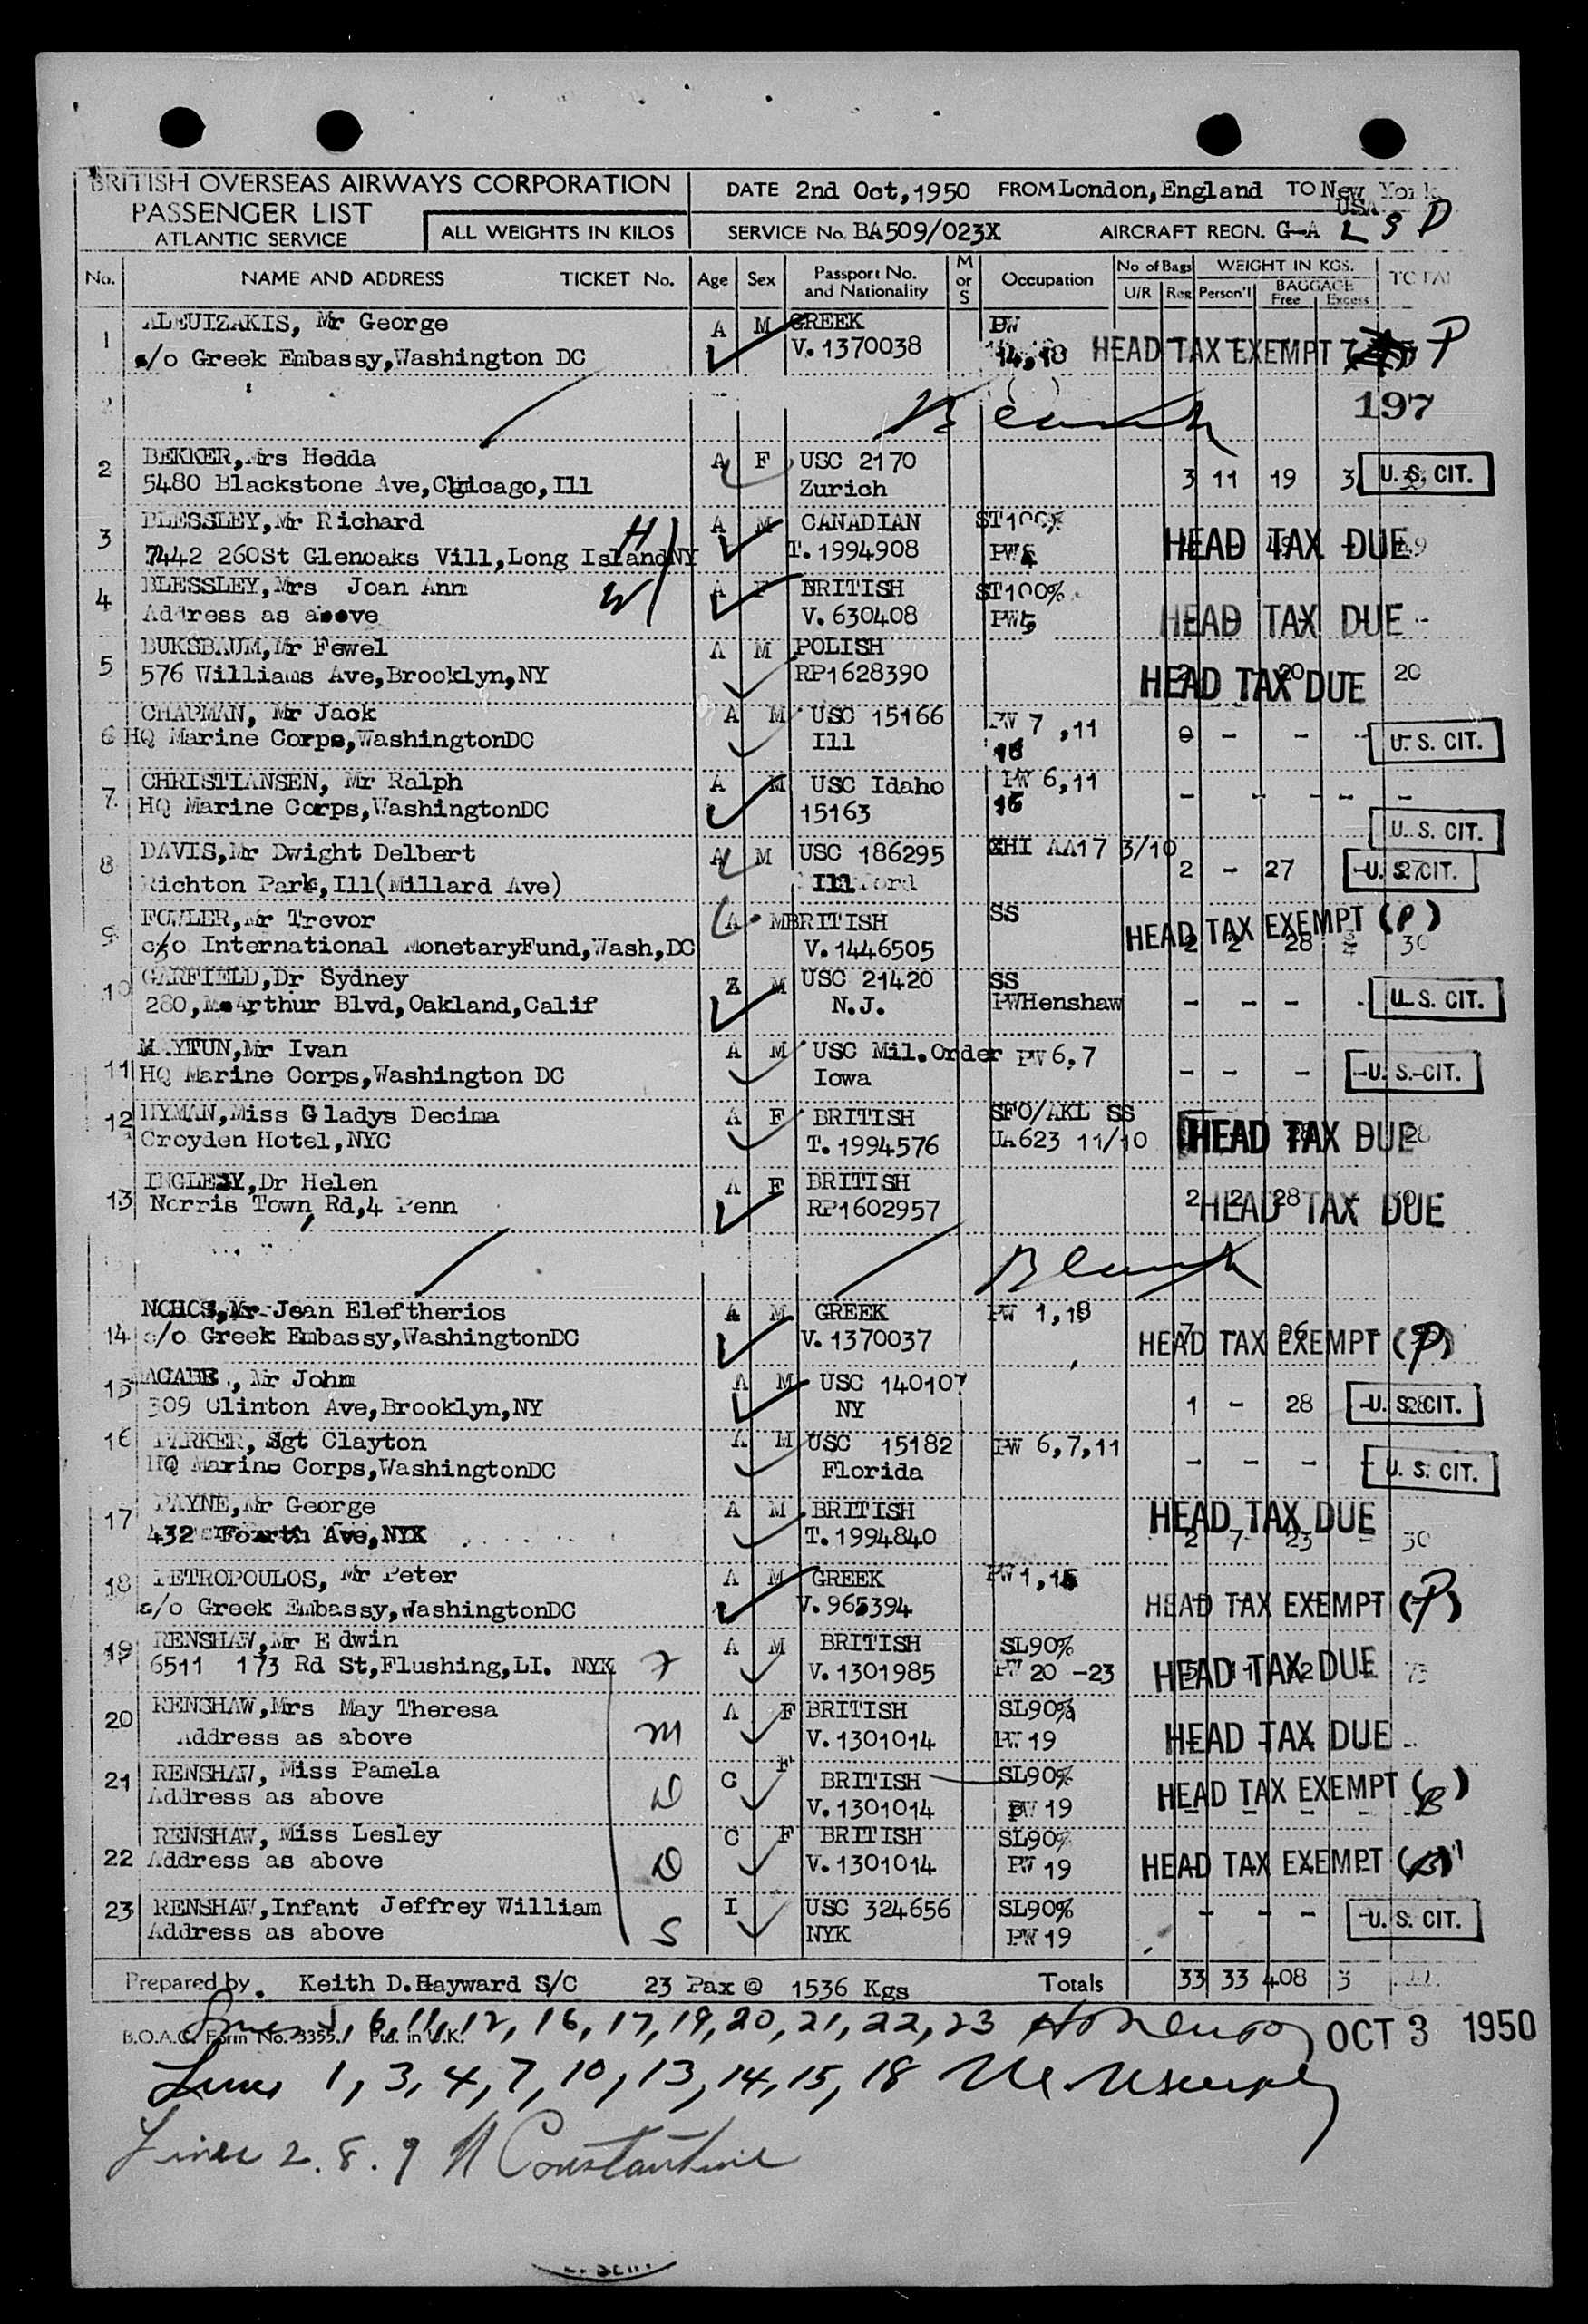 BRITISH OVERSEAS AIRWAYS CORPORATION
PASSENGER LIST
ATLANTIC SERVICE
ALL WEIGHTS IN KILOS
DATE 2nd Oct, 1950 FROM London, England TO New York
USA
SERVICE No. BA509/023X AIRCRAFT REGN. G-A L S D
No. NAME AND ADDRESS TICKET No. Age Sex Passport No. and Nationality M or S Occupation No of Bags U/R Reg WEIGHT IN KGS. Person'l BAGGAGE Free Excess TOTAL
1 ALEUIZAKIS, Mr George A M GREEK PW
c/o Greek Embassy, Washington DC V. 1370038 14,18 HEAD TAX EXEMPT P
Blank 197
2 BEKKER, Mrs Hedda A F USC 2170
5480 Blackstone Ave, Chicago, Ill Zurich 3 11 19 3 U. S. CIT.
3 BLESSLEY, Mr Richard H A M CANADIAN ST100%
7442 260St Glenoaks Vill, Long Island NY T. 1994908 PW HEAD TAX DUE
4 BLESSLEY, Mrs Joan Ann W A F BRITISH ST100%
Address as above V. 630408 PW5 HEAD TAX DUE
5 BUKSBAUM, Mr Fewel A M POLISH
576 Williams Ave, Brooklyn, NY RP1628390 2 20 20 HEAD TAX DUE
6 CHAPMAN, Mr Jack A M USC 15166 PW 7 ,11
HQ Marine Corps, WashingtonDC Ill - - - U. S. CIT.
7 CHRISTIANSEN, Mr Ralph A M USC Idaho PW 6,11
HQ Marine Corps, WashingtonDC 15163 - - - - -
U. S. CIT.
8 DAVIS, Mr Dwight Delbert A M USC 186295 CHI AA17 3/10
Richton Park, Ill (Millard Ave) Ill 2 - 27 - 27 U. S. CIT.
9 FOWLER, Mr Trevor A M BRITISH SS HEAD TAX EXEMPT (P)
c/o International MonetaryFund, Wash, DC V. 1446505 2 2 28 30
10 GARFIELD, Dr Sydney A M USC 21420 SS
280, McArthur Blvd, Oakland, Calif N.J. PWHenshaw - - - - U. S. CIT.
11 MAYTUN, Mr Ivan A M USC Mil. Order PW 6,7
HQ Marine Corps, Washington DC Iowa - - - - U. S. CIT.
12 HYMAN, Miss Gladys Decima A F BRITISH SFO/AKL SS
Croyden Hotel, NYC T. 1994576 UA623 11/10 HEAD TAX DUE 28
13 INGLEBY, Dr Helen A F BRITISH
Norris Town Rd, 4 Penn RP1602957 2 2 28 HEAD TAX DUE
Blank
14 Mr Jean Eleftherios A M GREEK PW 1,18
c/o Greek Embassy, WashingtonDC V. 1370037 HEAD TAX EXEMPT (P)
15 Mr John A M USC 140107
309 Clinton Ave, Brooklyn, NY NY 1 - 28 - 28 U. S. CIT.
16 PARKER, Sgt Clayton A M USC 15182 PW 6,7,11
HQ Marine Corps, WashingtonDC Florida - - - - U. S. CIT.
17 PAYNE, Mr George A M BRITISH HEAD TAX DUE
432 Fourth Ave, NYK T. 1994840 2 7 23 - 30
18 PETROPOULOS, Mr Peter A M GREEK PW 1,15
c/o Greek Embassy, WashingtonDC V. 965394 HEAD TAX EXEMPT (P)
19 RENSHAW, Mr Edwin A M BRITISH SL90%
6511 173 Rd St, Flushing, LI. NYK V. 1301985 PW 20 -23 HEAD TAX DUE
20 RENSHAW, Mrs May Theresa M A F BRITISH SL90%
Address as above V. 1301014 PW 19 HEAD TAX DUE
21 RENSHAW, Miss Pamela D C F BRITISH SL90%
Address as above V. 1301014 PW 19 HEAD TAX EXEMPT (B)
22 RENSHAW, Miss Lesley D C F BRITISH SL90%
Address as above V. 1301014 PW 19 HEAD TAX EXEMPT (B)
23 RENSHAW, Infant Jeffrey William S I USC 324656 SL90%
Address as above NYK PW 19 - - - - U. S. CIT.
Prepared by. Keith D. Hayward S/C 23 Pax @ 1536 Kgs Totals 33 33 408 3
Lines 5, 6, 11, 12, 16, 17, 19, 20, 21, 22, 23
B.O.A.C. Form No. 3355. Ptd. in U.K. OCT 3 1950
Lines 1, 3, 4, 7, 10, 13, 14, 15, 18
Lines 2. 8. 9 Constantine